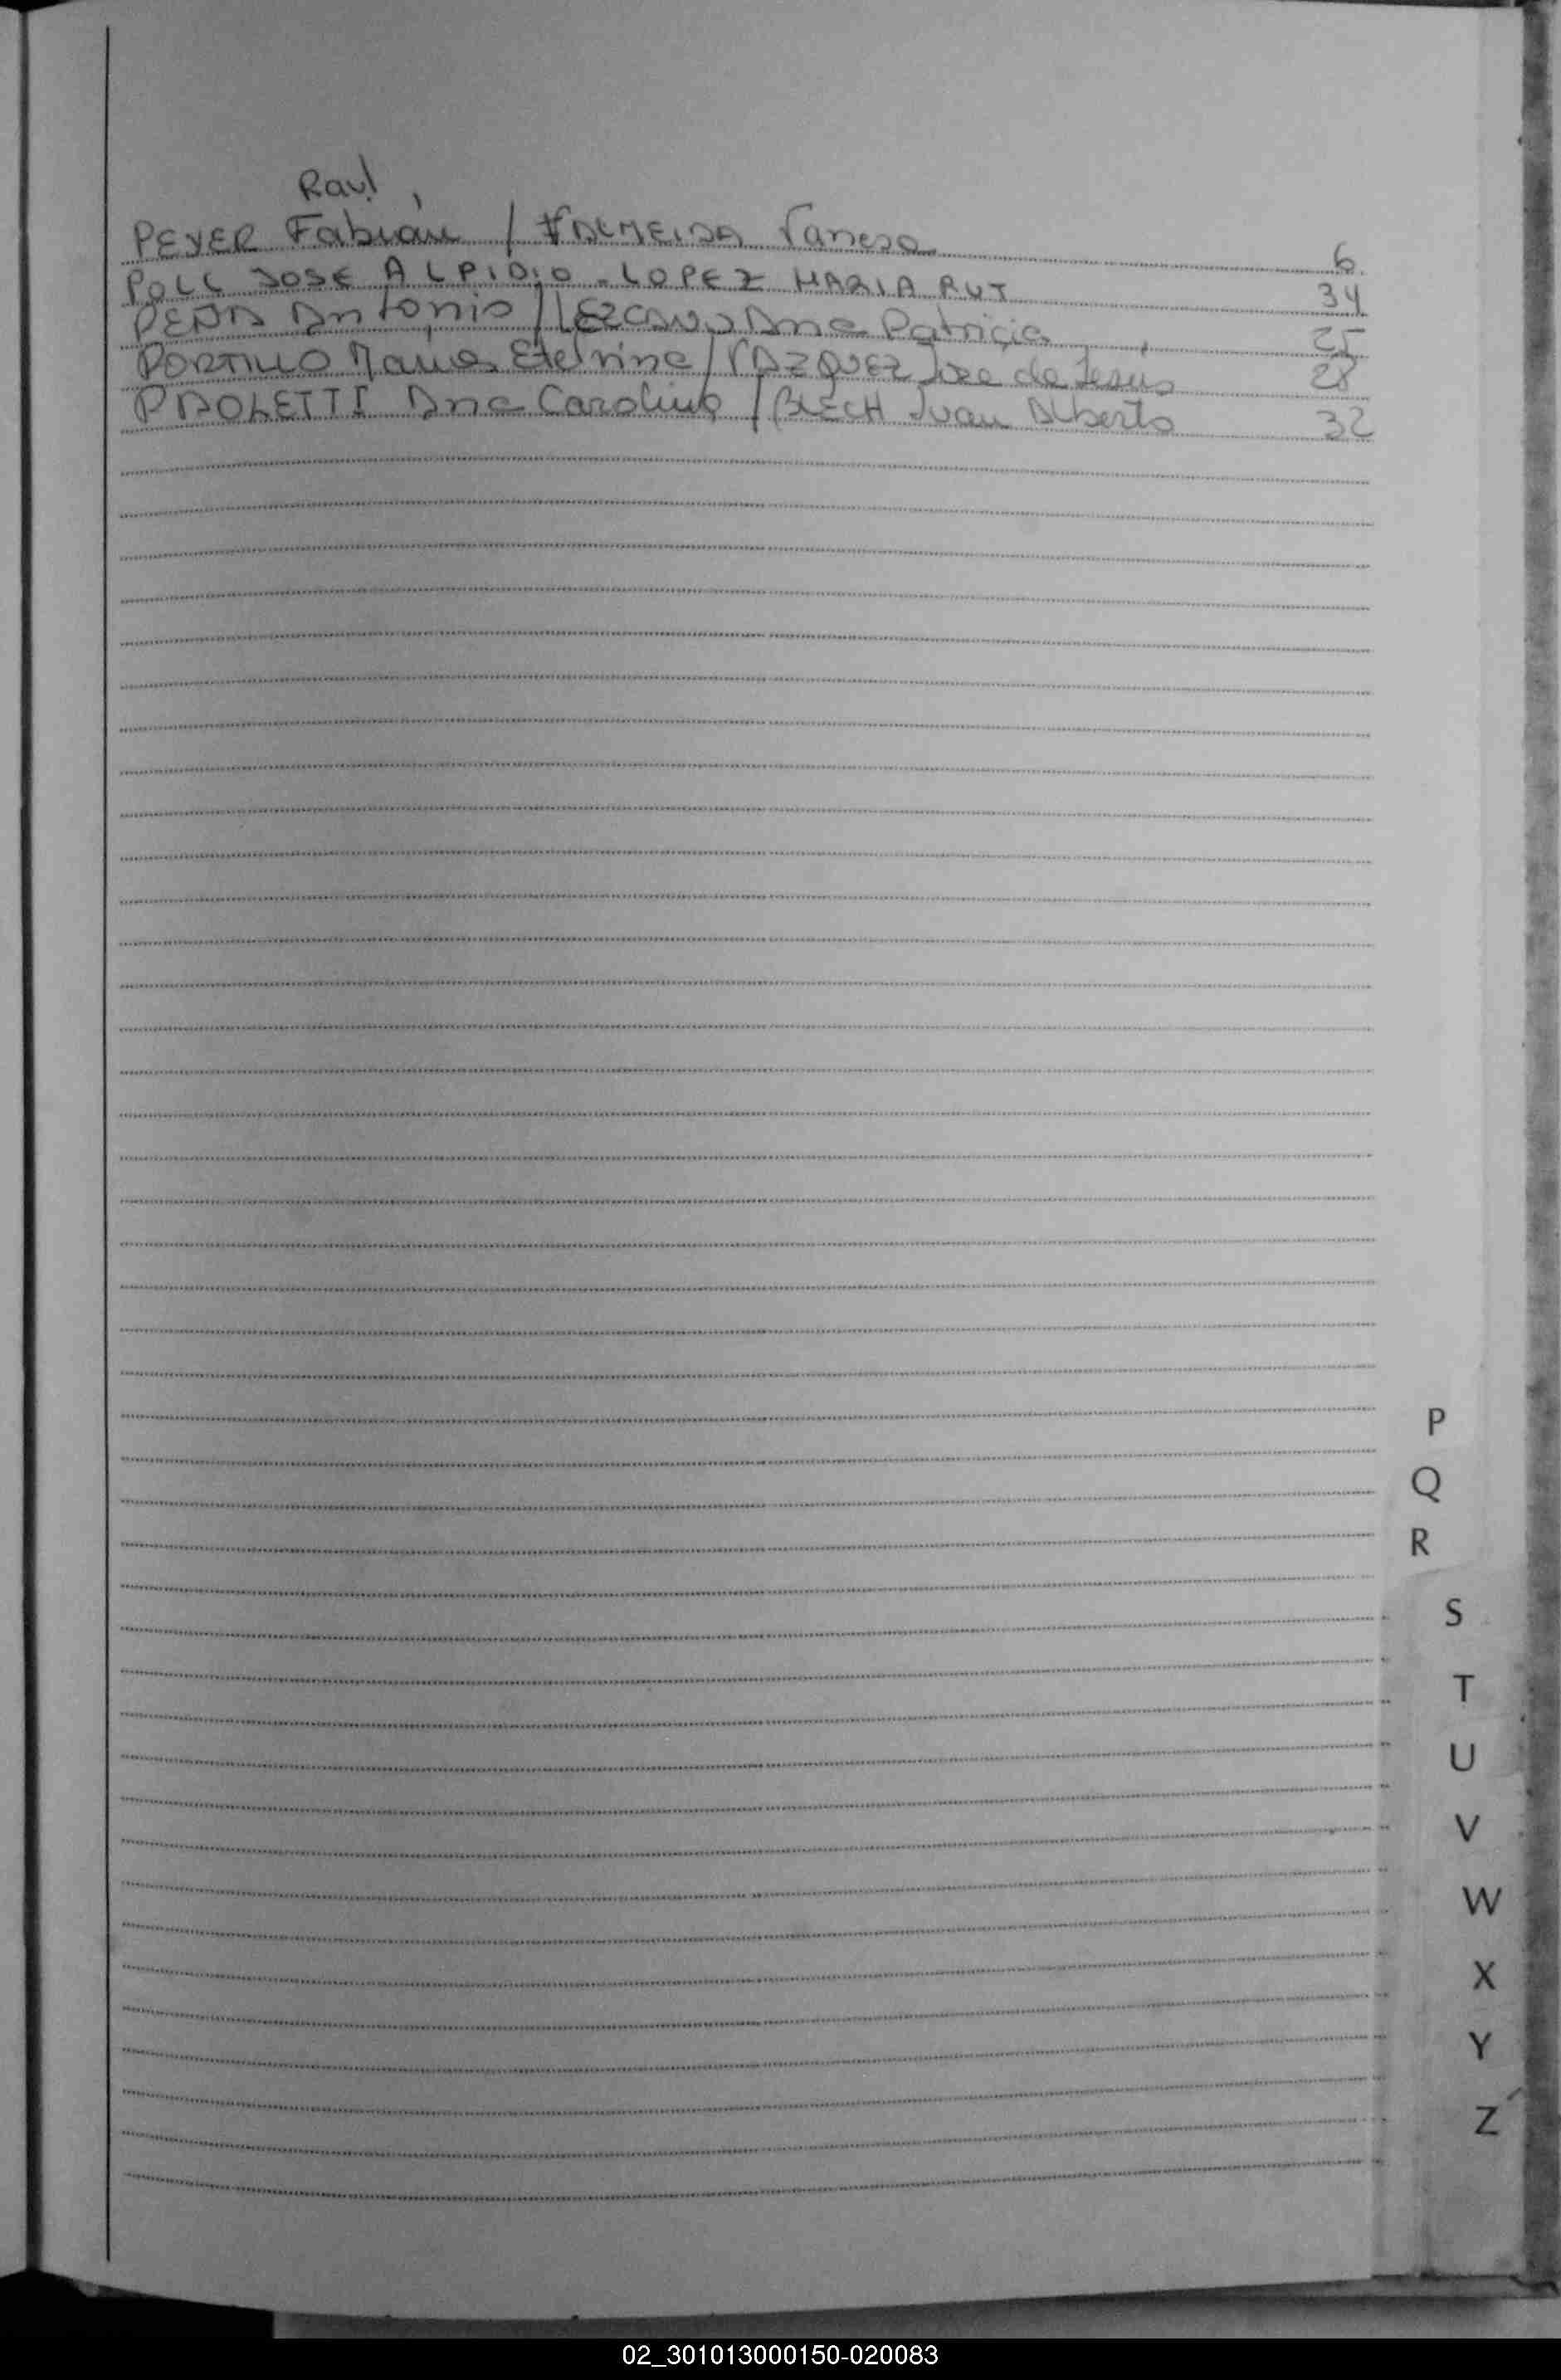 Raul
PEYER Fabián / ALMEIDA Vanesa 6
POLL JOSE ALPIDIO - LOPEZ MARIA RUT 34
PEÑA Antonio / LEZCANO Ana Patricia 25
PORTILLO Etelvina / VAZQUEZ José de Jesús 28
PAOLETTI Ana Carolina / BLECH Juan Alberto 32
P
Q
R
S
T
U
V
W
X
Y
Z
02_301013000150-020083